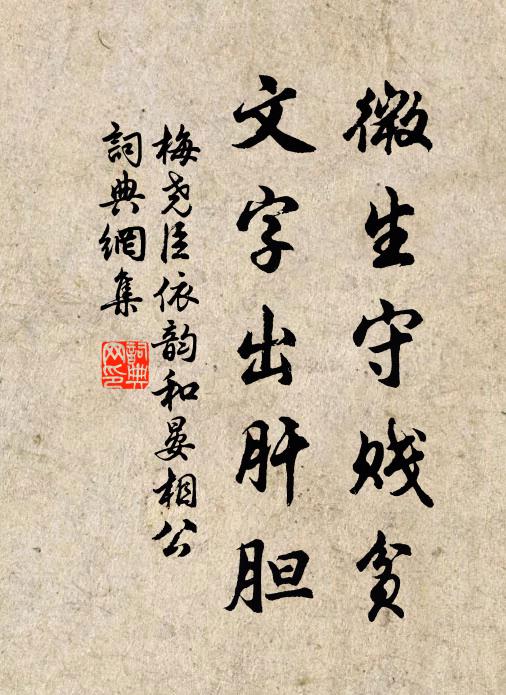 微生守贱贫
文字出肝胆
梅尧臣依韵和晏相公
詞典網集
詞典網印